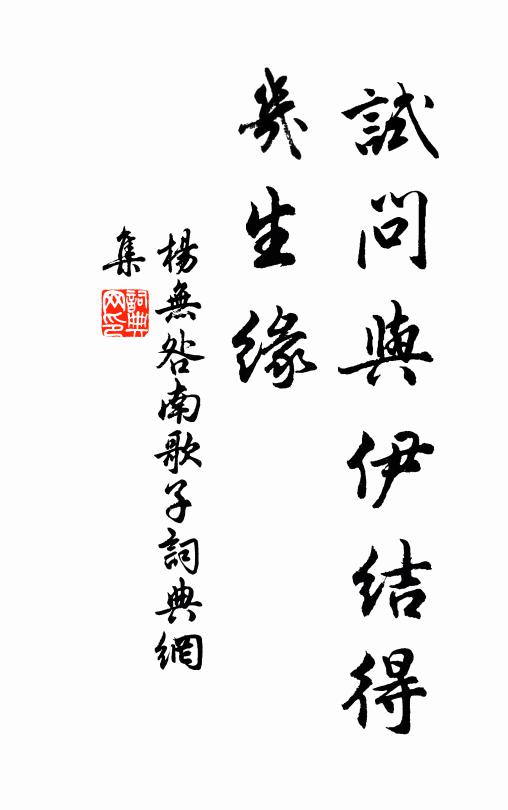 試問與伊結得
幾生緣
楊無咎南歌子詞典網
集
詞典
网印